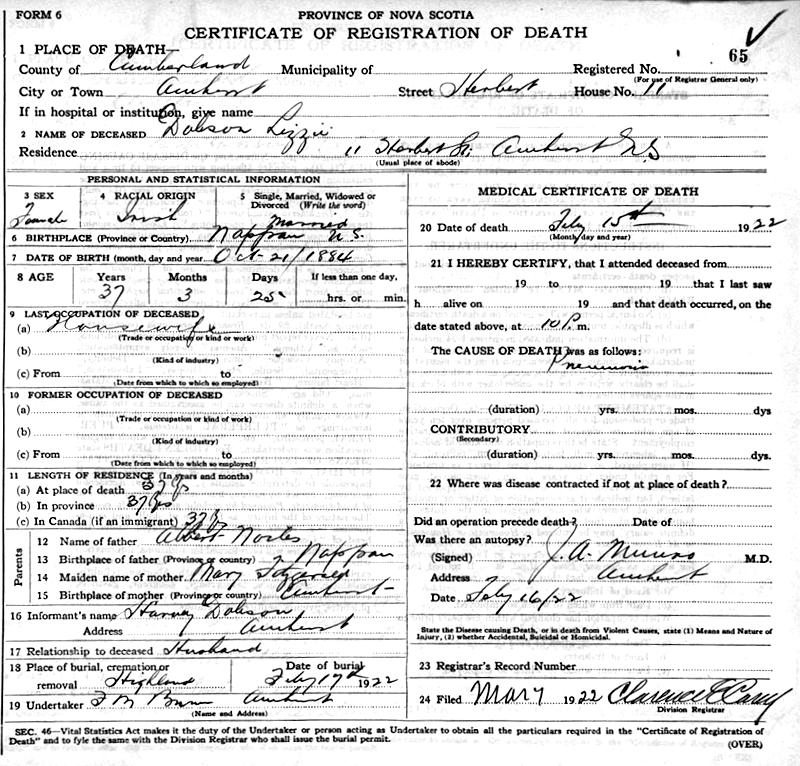 FORM 6
PROVINCE OF NOVA SCOTIA
CERTIFICATE OF REGISTRATION OF DEATH
65
1 PLACE OF DEATH—
County of Cumberland Municipality of Registered No.
(For use of Registrar General only)
City or Town Amherst Street Herbert House No. 11
If in hospital or institution, give name
2 NAME OF DECEASED Dobson Lizzie
Residence 11 Herbert St. Amherst N.S
(Usual place of abode)
PERSONAL AND STATISTICAL INFORMATION
3 SEX 4 RACIAL ORIGIN 5 Single, Married, Widowed or Divorced (Write the word)
Female Irish Married
6 BIRTHPLACE (Province or Country) Nappan N.S.
7 DATE OF BIRTH (month, day and year) Oct 21/1884
8 AGE Years Months Days If less than one day,
37 3 25 hrs. or min.
9 LAST OCCUPATION OF DECEASED
(a) Housewife
(Trade or occupation or kind or work)
(b)
(Kind of industry)
(c) From to
(Date from which to which so employed)
10 FORMER OCCUPATION OF DECEASED
(a)
(Trade or occupation or kind of work)
(b)
(Kind of industry)
(c) From to
(Date from which to which so employed)
11 LENGTH OF RESIDENCE (In years and months)
(a) At place of death 37 yrs
(b) In province 37 yrs
(c) In Canada (if an immigrant) 37 yrs
Parents
12 Name of father Albert
13 Birthplace of father (Province or country) Nappan
14 Maiden name of mother Mary Fitzgerald
15 Birthplace of mother (Province or country) Amherst
16 Informant's name Harvey Dobson
Address Amherst
17 Relationship to deceased Husband
18 Place of burial, cremation or removal Highland Date of burial Feby 17th 1922
19 Undertaker Amherst
(Name and Address)
MEDICAL CERTIFICATE OF DEATH
20 Date of death Feby 15th 1922
(Month, day and year)
21 I HEREBY CERTIFY, that I attended deceased from
19 to 19 that I last saw
h alive on 19 and that death occurred, on the
date stated above, at 10 P. m.
The CAUSE OF DEATH was as follows:
Pneumonia
(duration) yrs. mos. dys
CONTRIBUTORY
(Secondary)
(duration) yrs. mos. dys.
22 Where was disease contracted if not at place of death?
Did an operation precede death? Date of
Was there an autopsy?
(Signed) J. A. Munro M.D.
Address Amherst
Date Feby 16/22
State the Disease causing Death, or in death from Violent Causes, state (1) Means and Nature of
Injury, (2) whether Accidental, Suicidal or Homicidal.
23 Registrar's Record Number
24 Filed Mary 1922 Clarence
Division Registrar
SEC. 46—Vital Statistics Act makes it the duty of the Undertaker or person acting as Undertaker to obtain all the particulars required in the "Certificate of Registration of
Death" and to fyle the same with the Division Registrar who shall issue the burial permit.
(OVER)